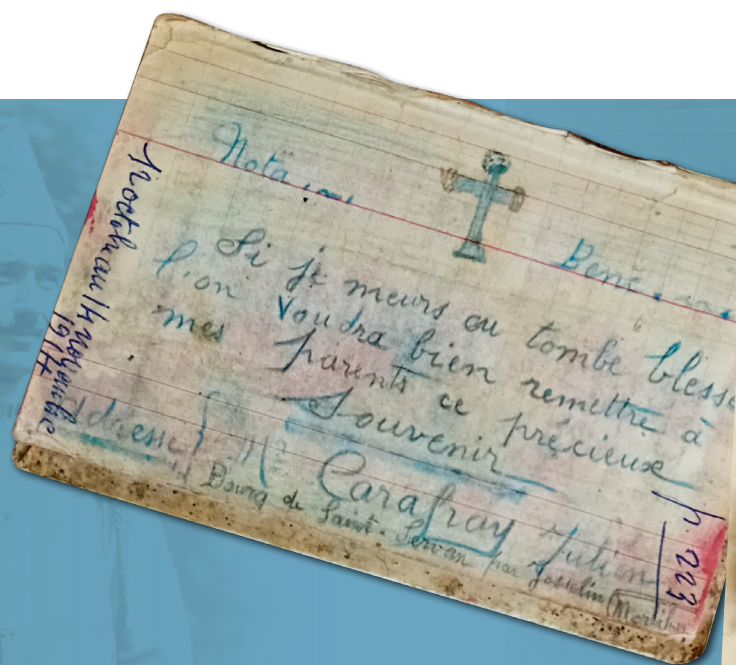 Nota
Bene
Si je meurs ou tombe blessé
l'on Voudra bien remettre à
mes parents ce précieux
Souvenir
Addresse Mr Carafray Julien
Bourg de Saint-Servan par Josselin (Morbihan
14 novembre
1914
p. 223